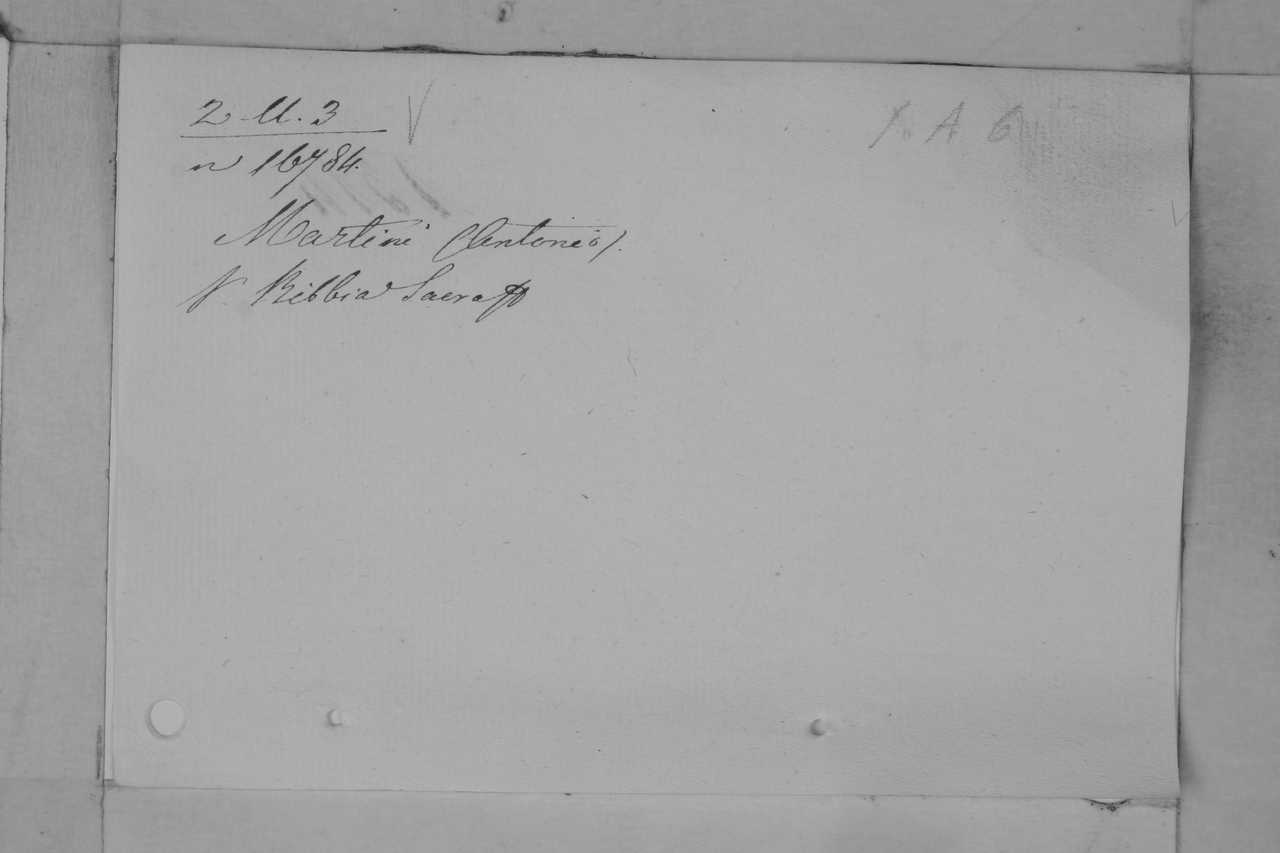 2. U. 3
n 16784.
Martini (Antonio).
V. Bibbia Sacra
A 6